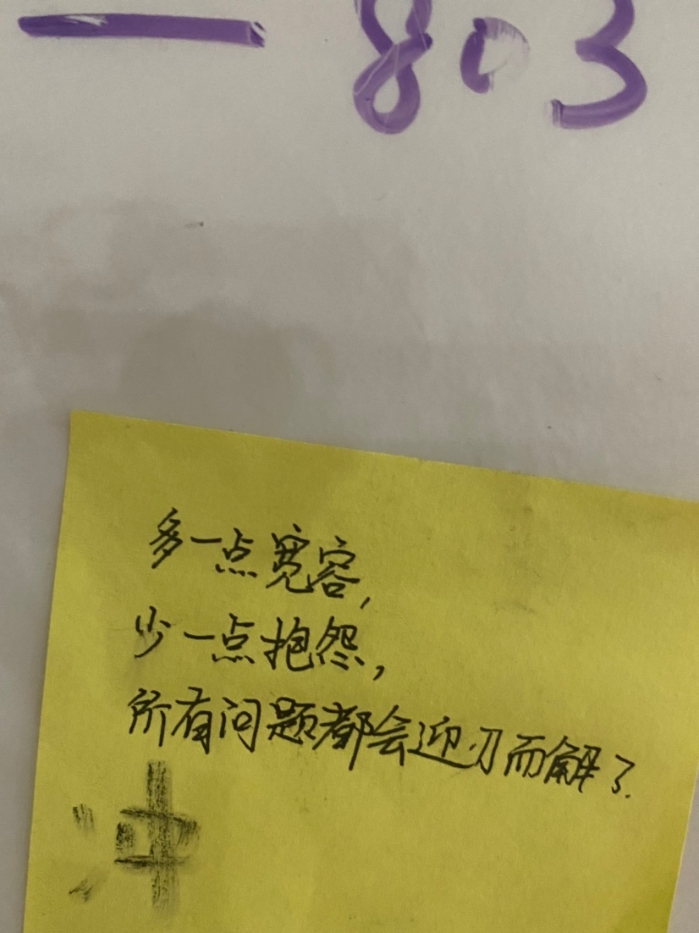 一 803
多一点宽容，
少一点抱怨，
所有问题都会迎刃而解了.
冲